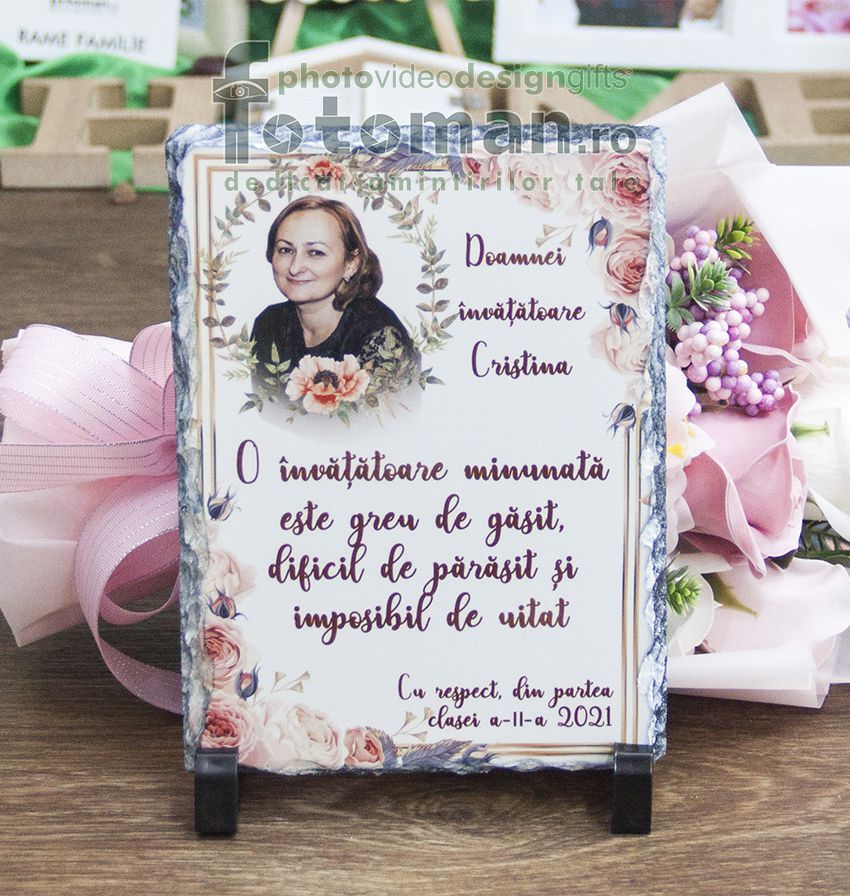 RAME FAMILIE
photovideodesigngifts
fotoman.ro
dedicat amintirilor tale
Doamnei
învățătoare
Cristina
O învățătoare minunată
este greu de găsit,
dificil de părăsit și
imposibil de uitat
Cu respect, din partea
clasei a-II-a 2021